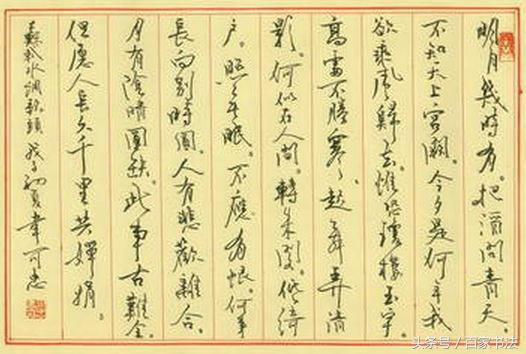 明月幾時有。把酒問青天。
不知天上宮闕。今夕是何年我
欲乘風歸去。惟恐瓊樓玉宇。
高處不勝寒。起舞弄清
影。何似在人間。轉朱閣。低綺
户。照無眠。不應有恨。何事
長向別時圓。人有悲歡離合。
月有陰晴圓缺。此事古難全。
但愿人長久千里共嬋娟。
蘇軾水調歌頭 戊子初夏 韋可忠
头条号／百家书法